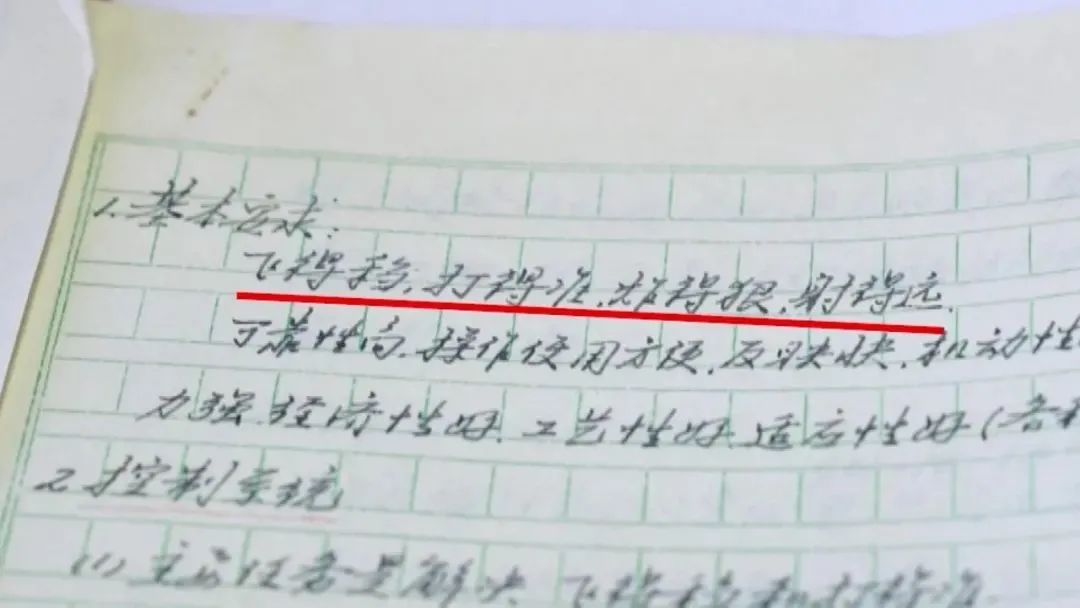 1. 基本要求:
飞得稳、打得准、炸得狠、射得远.
可靠性高、操作使用方便、反映快、机动性
力强、经济性好、工艺性好、适应性好(各种
2. 控制系统
(1) 主要任务是解决、飞得稳和打得准